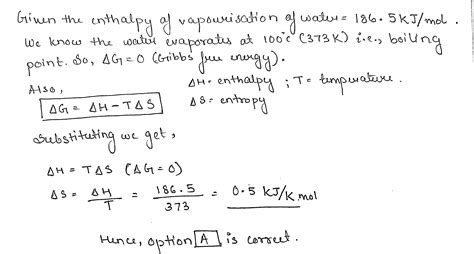 Given the enthalpy of vapourisation of water = 186.5 KJ/mol.
We know the water evaporates at 100°C (373K) i.e., boiling
point. So, ΔG=0 (Gibbs free energy).
Also,
ΔH= enthalpy ; T= temperature.
ΔG = ΔH-TΔS
ΔS= entropy
Substituting we get,
ΔH = TΔS (ΔG=0)
ΔS = ΔH/T = 186.5/373 = 0.5 KJ/K mol
Hence, option A is correct.